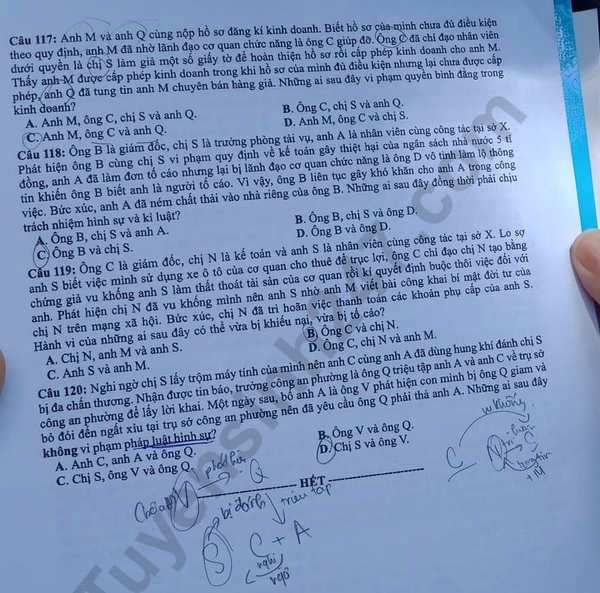 Câu 117: Anh M và anh Q cùng nộp hồ sơ đăng kí kinh doanh. Biết hồ sơ của mình chưa đủ điều kiện
theo quy định, anh M đã nhờ lãnh đạo cơ quan chức năng là ông C giúp đỡ. Ông C đã chỉ đạo nhân viên
dưới quyền là chị S làm giả một số giấy tờ để hoàn thiện hồ sơ rồi cấp phép kinh doanh cho anh M.
Thấy anh M được cấp phép kinh doanh trong khi hồ sơ của mình đủ điều kiện nhưng lại chưa được cấp
phép, anh Q đã tung tin anh M chuyên bán hàng giả. Những ai sau đây vi phạm quyền bình đẳng trong
kinh doanh?
A. Anh M, ông C, chị S và anh Q. B. Ông C, chị S và anh Q.
C. Anh M, ông C và anh Q. D. Anh M, ông C và chị S.
Câu 118: Ông B là giám đốc, chị S là trưởng phòng tài vụ, anh A là nhân viên cùng công tác tại sở X.
Phát hiện ông B cùng chị S vi phạm quy định về kế toán gây thiệt hại của ngân sách nhà nước 5 tỉ
đồng, anh A đã làm đơn tố cáo nhưng lại bị lãnh đạo cơ quan chức năng là ông D vô tình làm lộ thông
tin khiến ông B biết anh là người tố cáo. Vì vậy, ông B liên tục gây khó khăn cho anh A trong công
việc. Bức xúc, anh A đã ném chất thải vào nhà riêng của ông B. Những ai sau đây đồng thời phải chịu
trách nhiệm hình sự và kỉ luật?
A. Ông B, chị S và anh A. B. Ông B, chị S và ông D.
C. Ông B và chị S. D. Ông B và ông D.
Câu 119: Ông C là giám đốc, chị N là kế toán và anh S là nhân viên cùng công tác tại sở X. Lo sợ
anh S biết việc mình sử dụng xe ô tô của cơ quan cho thuê để trục lợi, ông C chỉ đạo chị N tạo bằng
chứng giả vu khống anh S làm thất thoát tài sản của cơ quan rồi kí quyết định buộc thôi việc đối với
anh. Phát hiện chị N đã vu khống mình nên anh S nhờ anh M viết bài công khai bí mật đời tư của
chị N trên mạng xã hội. Bức xúc, chị N đã trì hoãn việc thanh toán các khoản phụ cấp của anh S.
Hành vi của những ai sau đây có thể vừa bị khiếu nại, vừa bị tố cáo?
A. Chị N, anh M và anh S. B. Ông C và chị N.
C. Anh S và anh M. D. Ông C, chị N và anh M.
Câu 120: Nghi ngờ chị S lấy trộm máy tính của mình nên anh C cùng anh A đã dùng hung khí đánh chị S
bị đa chấn thương. Nhận được tin báo, trưởng công an phường là ông Q triệu tập anh A và anh C về trụ sở
công an phường để lấy lời khai. Một ngày sau, bố anh A là ông V phát hiện con mình bị ông Q giam và
bỏ đói đến ngất xỉu tại trụ sở công an phường nên đã yêu cầu ông Q phải thả anh A. Những ai sau đây
không vi phạm pháp luật hình sự?
A. Anh C, anh A và ông Q. B. Ông V và ông Q.
C. Chị S, ông V và ông Q. D. Chị S và ông V.
HẾT
V Q
bị đánh triệu tập
S C + A
nghi
ngờ
vu khống
C N